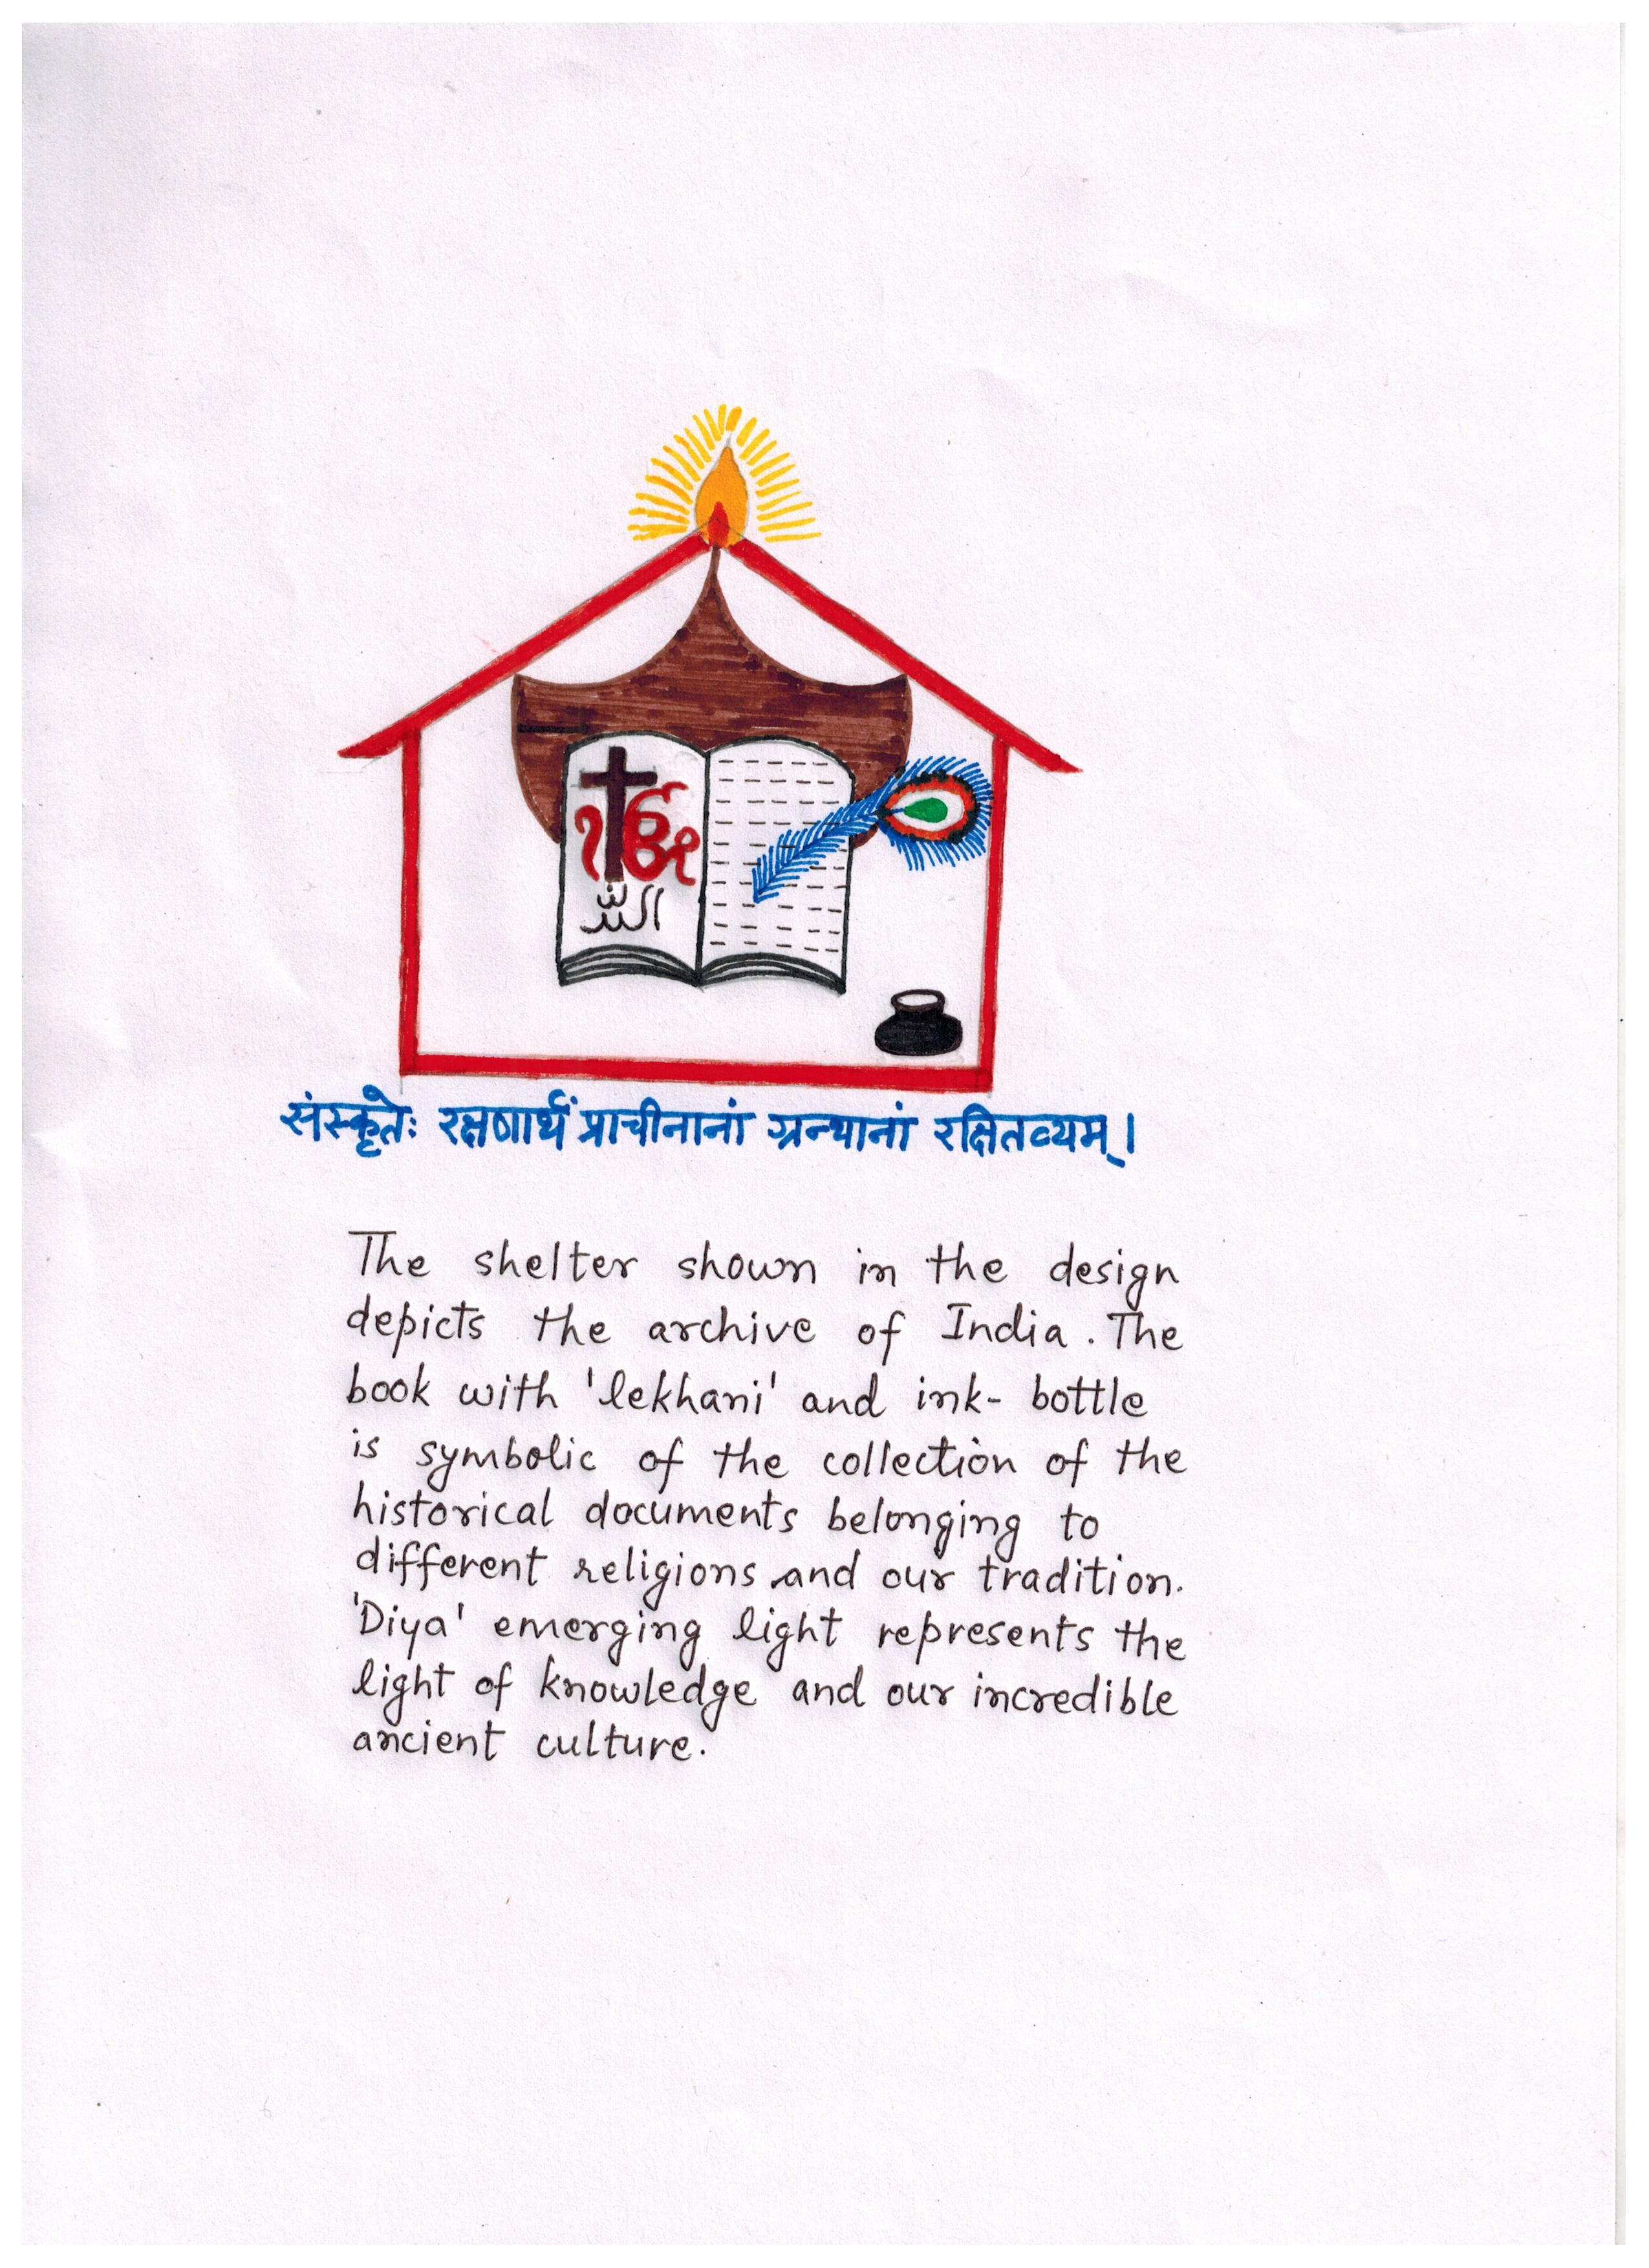 الله
संस्कृतेः रक्षणार्थं प्राचीनानां ग्रन्थानां रक्षितव्यम्।
The shelter shown in the design
depicts the archive of India. The
book with 'lekhani' and ink- bottle
is symbolic of the collection of the
historical documents belonging to
different religions and our tradition.
'Diya' emerging light represents the
light of knowledge and our incredible
ancient culture.